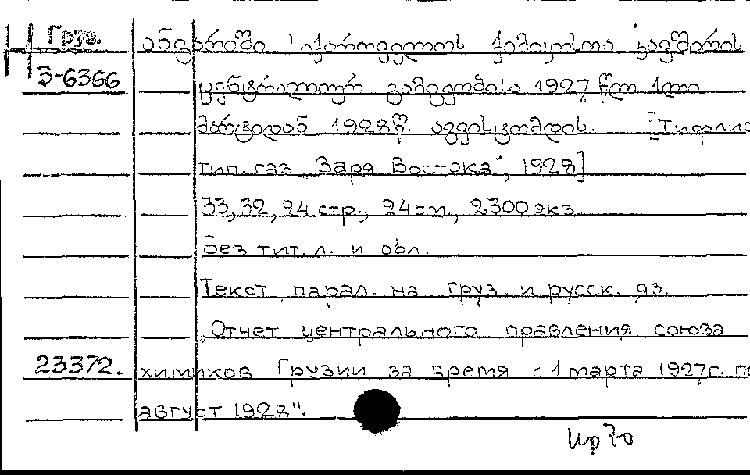 Груз. ანგარიში საქართველოს ქიმიკოსთა კავშირის
3-6366 ცენტრალურ გამგეობისა 1927 წლ. 1ლი
მარტიდან 1928წ. აგვისტომდის. [Тифлис
тип. газ. "Заря Востока", 1928]
33, 32, 24 стр., 24 см., 2300 экз.
Без тит. л. и обл.
Текст парал. на груз. и русск. яз.
"Отчет центрального правления союза
23372. химиков Грузии за время с 1 марта 1927г. по
август 1928".